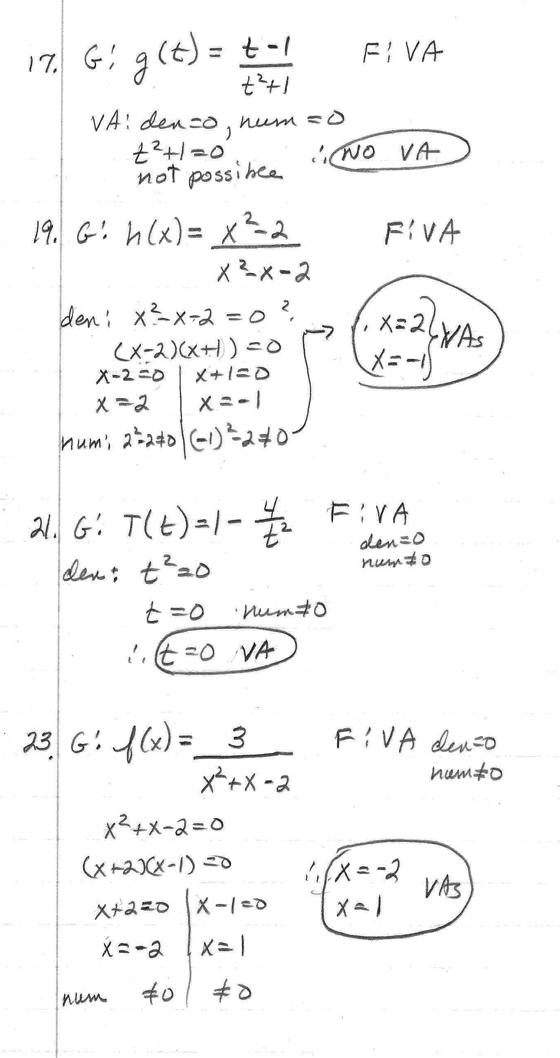 17. G: g(t) = t-1/t²+1 F: VA
VA: den=0, num = 0
t²+1=0 ∴ NO VA
not possible
19. G: h(x) = x²-2/x²-x-2 F: VA
den: x²-x-2 = 0 ?
(x-2)(x+1) = 0
x-2=0 | x+1=0
x=2 | x=-1
num: 2²-2≠0 | (-1)²-2≠0 → x=2 x=-1 } VAs
21. G: T(t)=1- 4/t² F: VA
den=0
num≠0
den: t²=0
t=0 num≠0
∴ t=0 VA
23. G: f(x) = 3/x²+x-2 F: VA den=0
num≠0
x²+x-2=0
(x+2)(x-1)=0 ∴ x=-2
x+2=0 | x-1=0 x=1 VAs
x=-2 | x=1
num ≠0 | ≠0